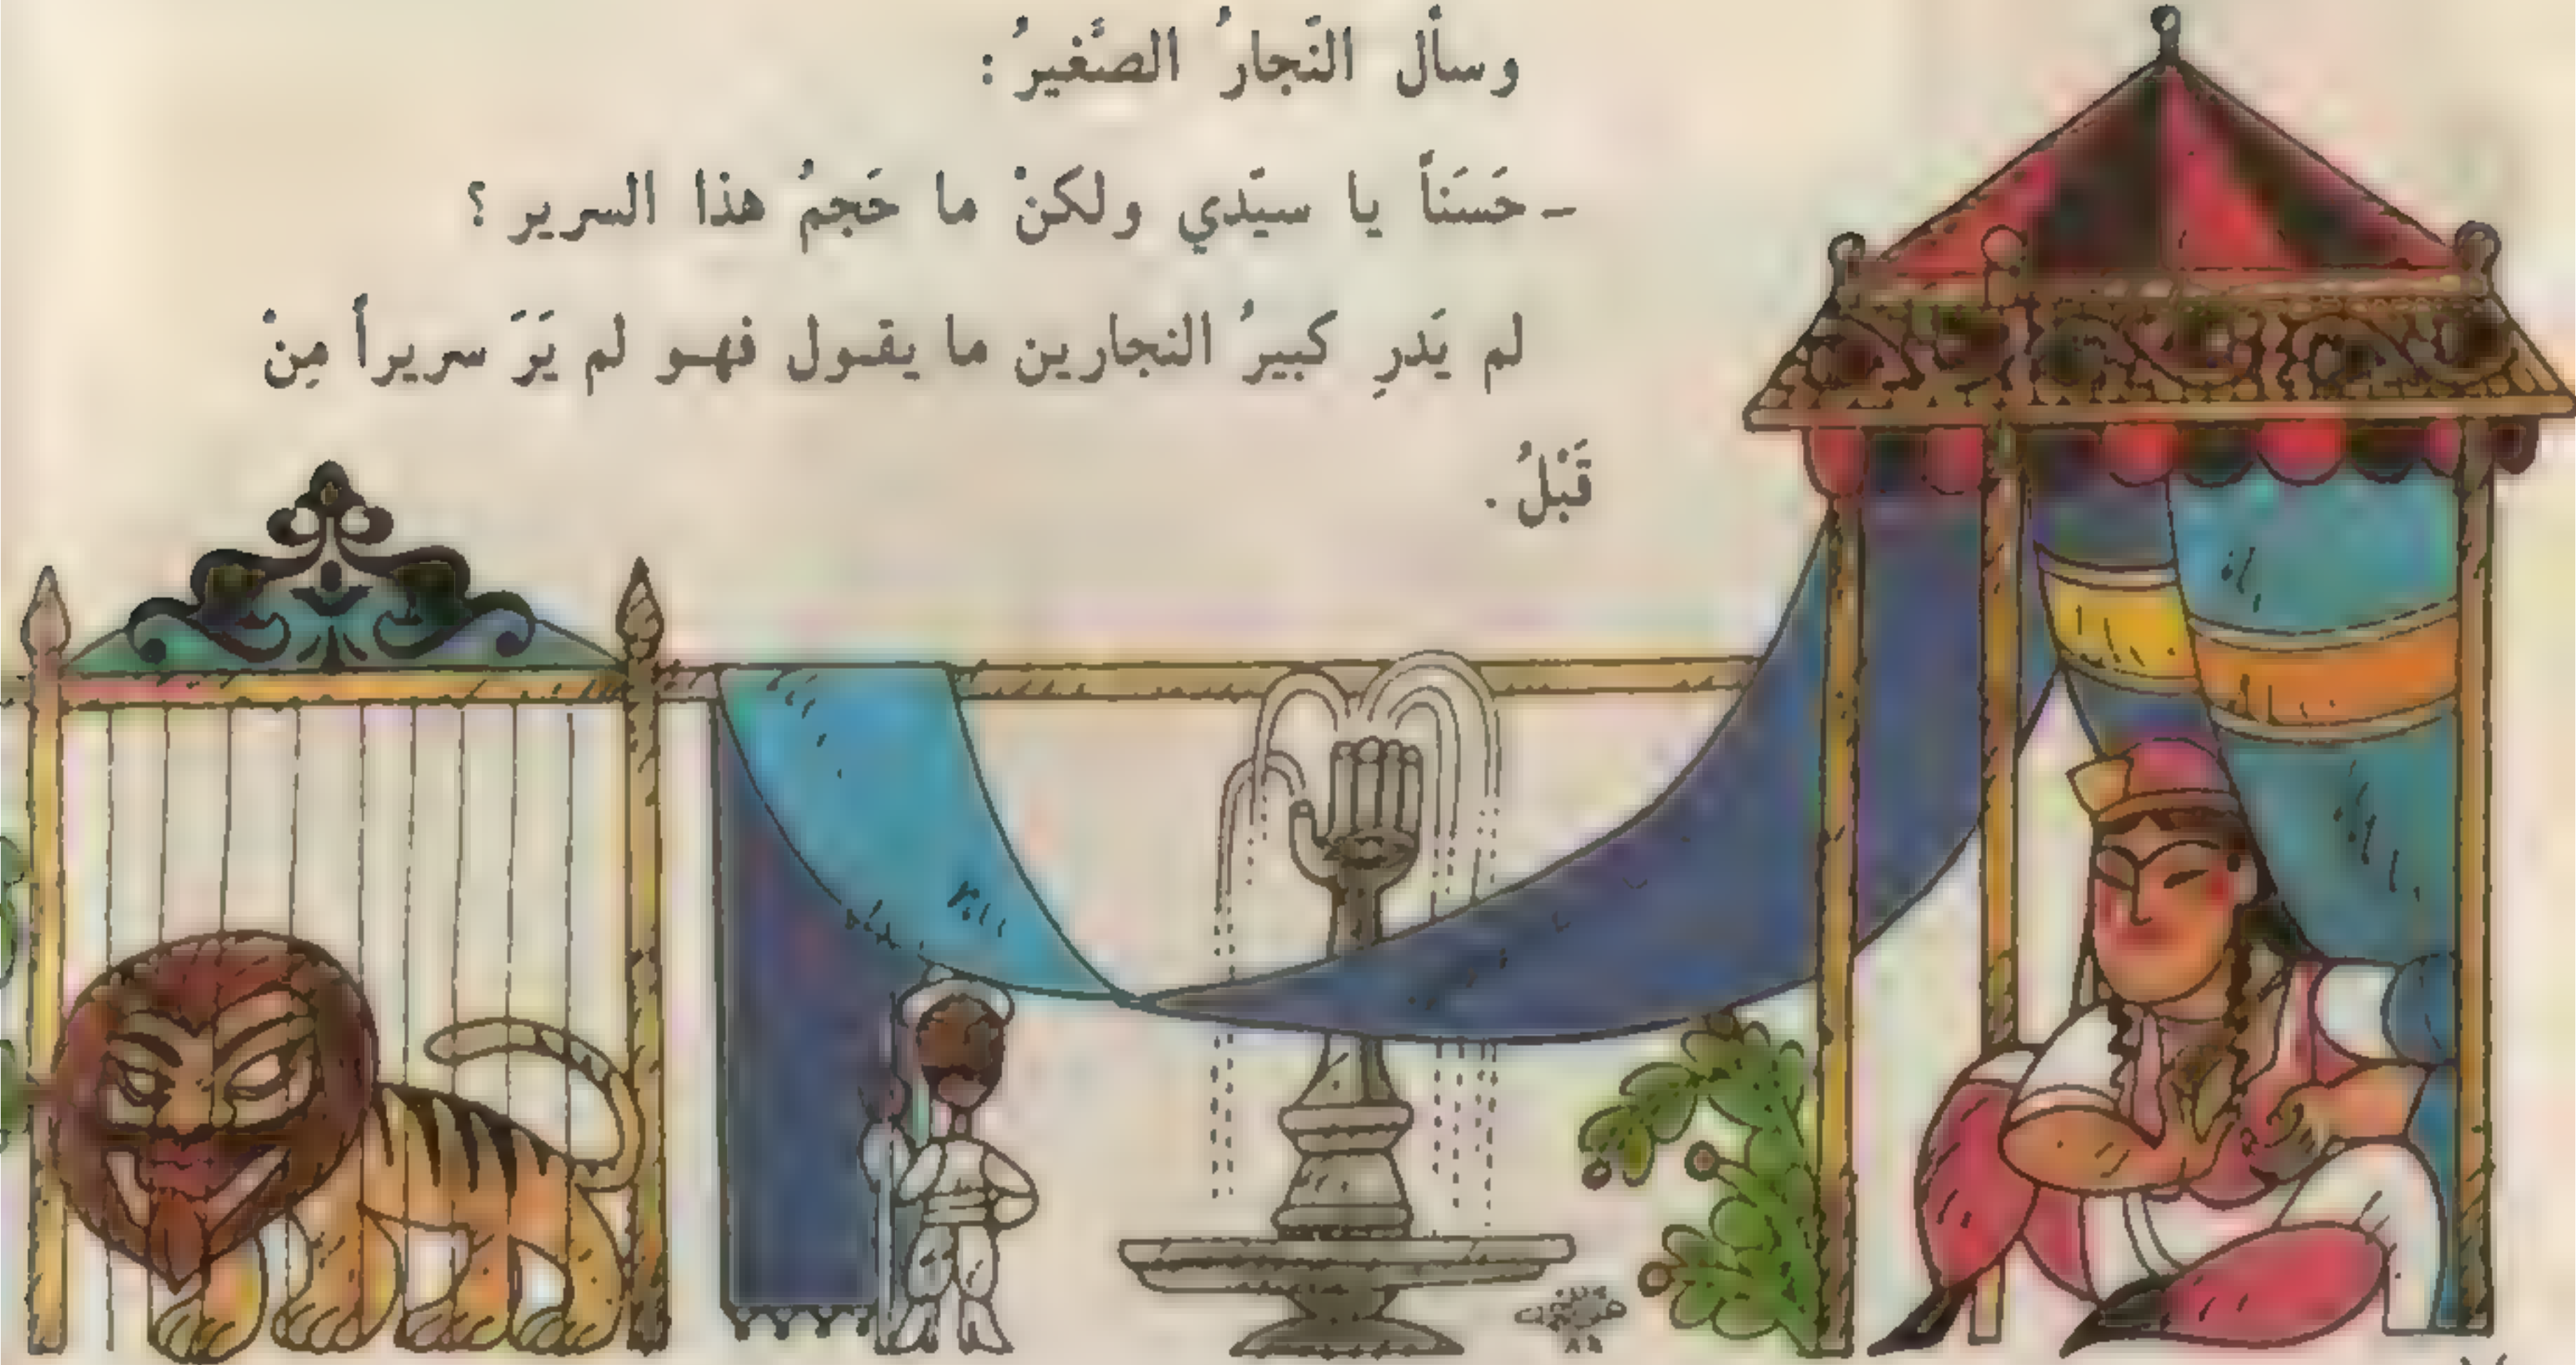 وسأل النّجارُ الصَّغيرُ :
- حَسَناً يا سيّدي ولكنْ ما حَجمُ هذا السرير ؟
لم يَدرِ كبيرُ النجارين ما يقول فهو لم يَرَ سريراً مِنْ
قَبْلُ .